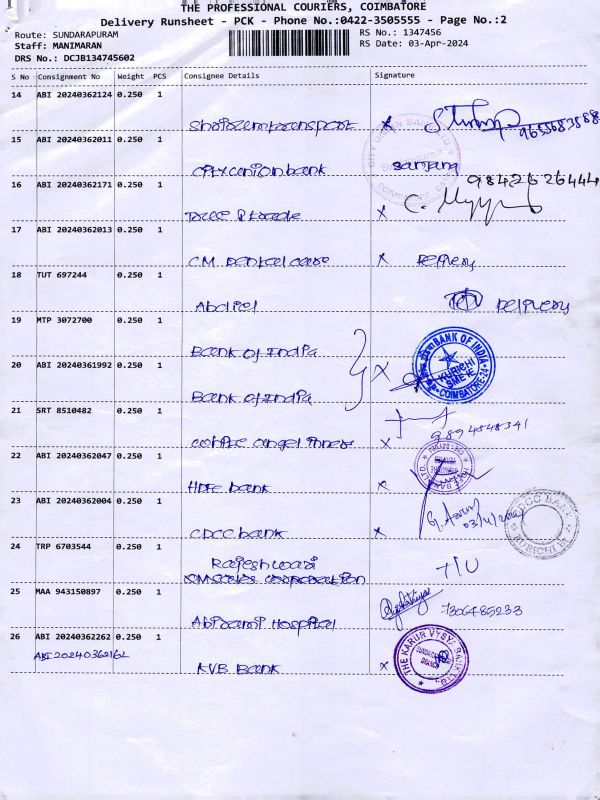 THE PROFESSIONAL COURIERS, COIMBATORE
Delivery Runsheet - PCK - Phone No.:0422-3505555 - Page No.:2
Route: SUNDARAPURAM RS No.: 1347456
Staff: MANIMARAN RS Date: 03-Apr-2024
DRS No.: DCJB134745602
S No Consignment No Weight PCS Consignee Details Signature
14 ABI 20240362124 0.250 1
transport x
15 ABI 20240362011 0.250 1
City union bank sanjana
16 ABI 20240362171 0.250 1 9842626444
x C.
17 ABI 20240362013 0.250 1
C.M. Dental care x Delivery
18 TUT 697244 0.250 1
Delivery
19 MTP 3072700 0.250 1
Bank of India
BANK OF INDIA
KURICHI
COIMBATORE-24
20 ABI 20240361992 0.250 1 x
Bank of India
21 SRT 8510482 0.250 1
white angel x 9894548341
22 ABI 20240362047 0.250 1
HDFC bank x
23 ABI 20240362004 0.250 1
CDCC bank x
CC BANK
KURICHI
24 TRP 6703544 0.250 1
Rajeshwari
corporation
25 MAA 943150897 0.250 1
Abirami Hospital 7306485233
26 ABI 20240362262 0.250 1
ABI 20240362162
KVB Bank x
THE KARUR VYSYA BANK LTD.